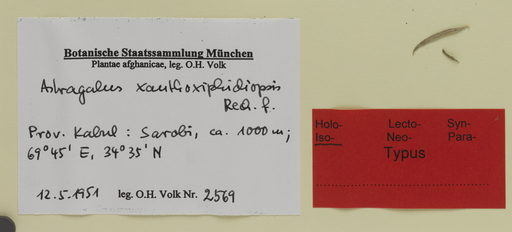 Botanische Staatssammlung München
Plantae afghanicae, leg. O.H. Volk
Astragalus xanthoxiphidiopsis
Rech. f.
Prov. Kabul : Sarobi, ca. 1000 m;
69°45' E, 34°35' N
12.5.1951 leg. O.H. Volk Nr. 2569
Holo- Lecto- Syn-
Iso- Neo- Para-
Typus